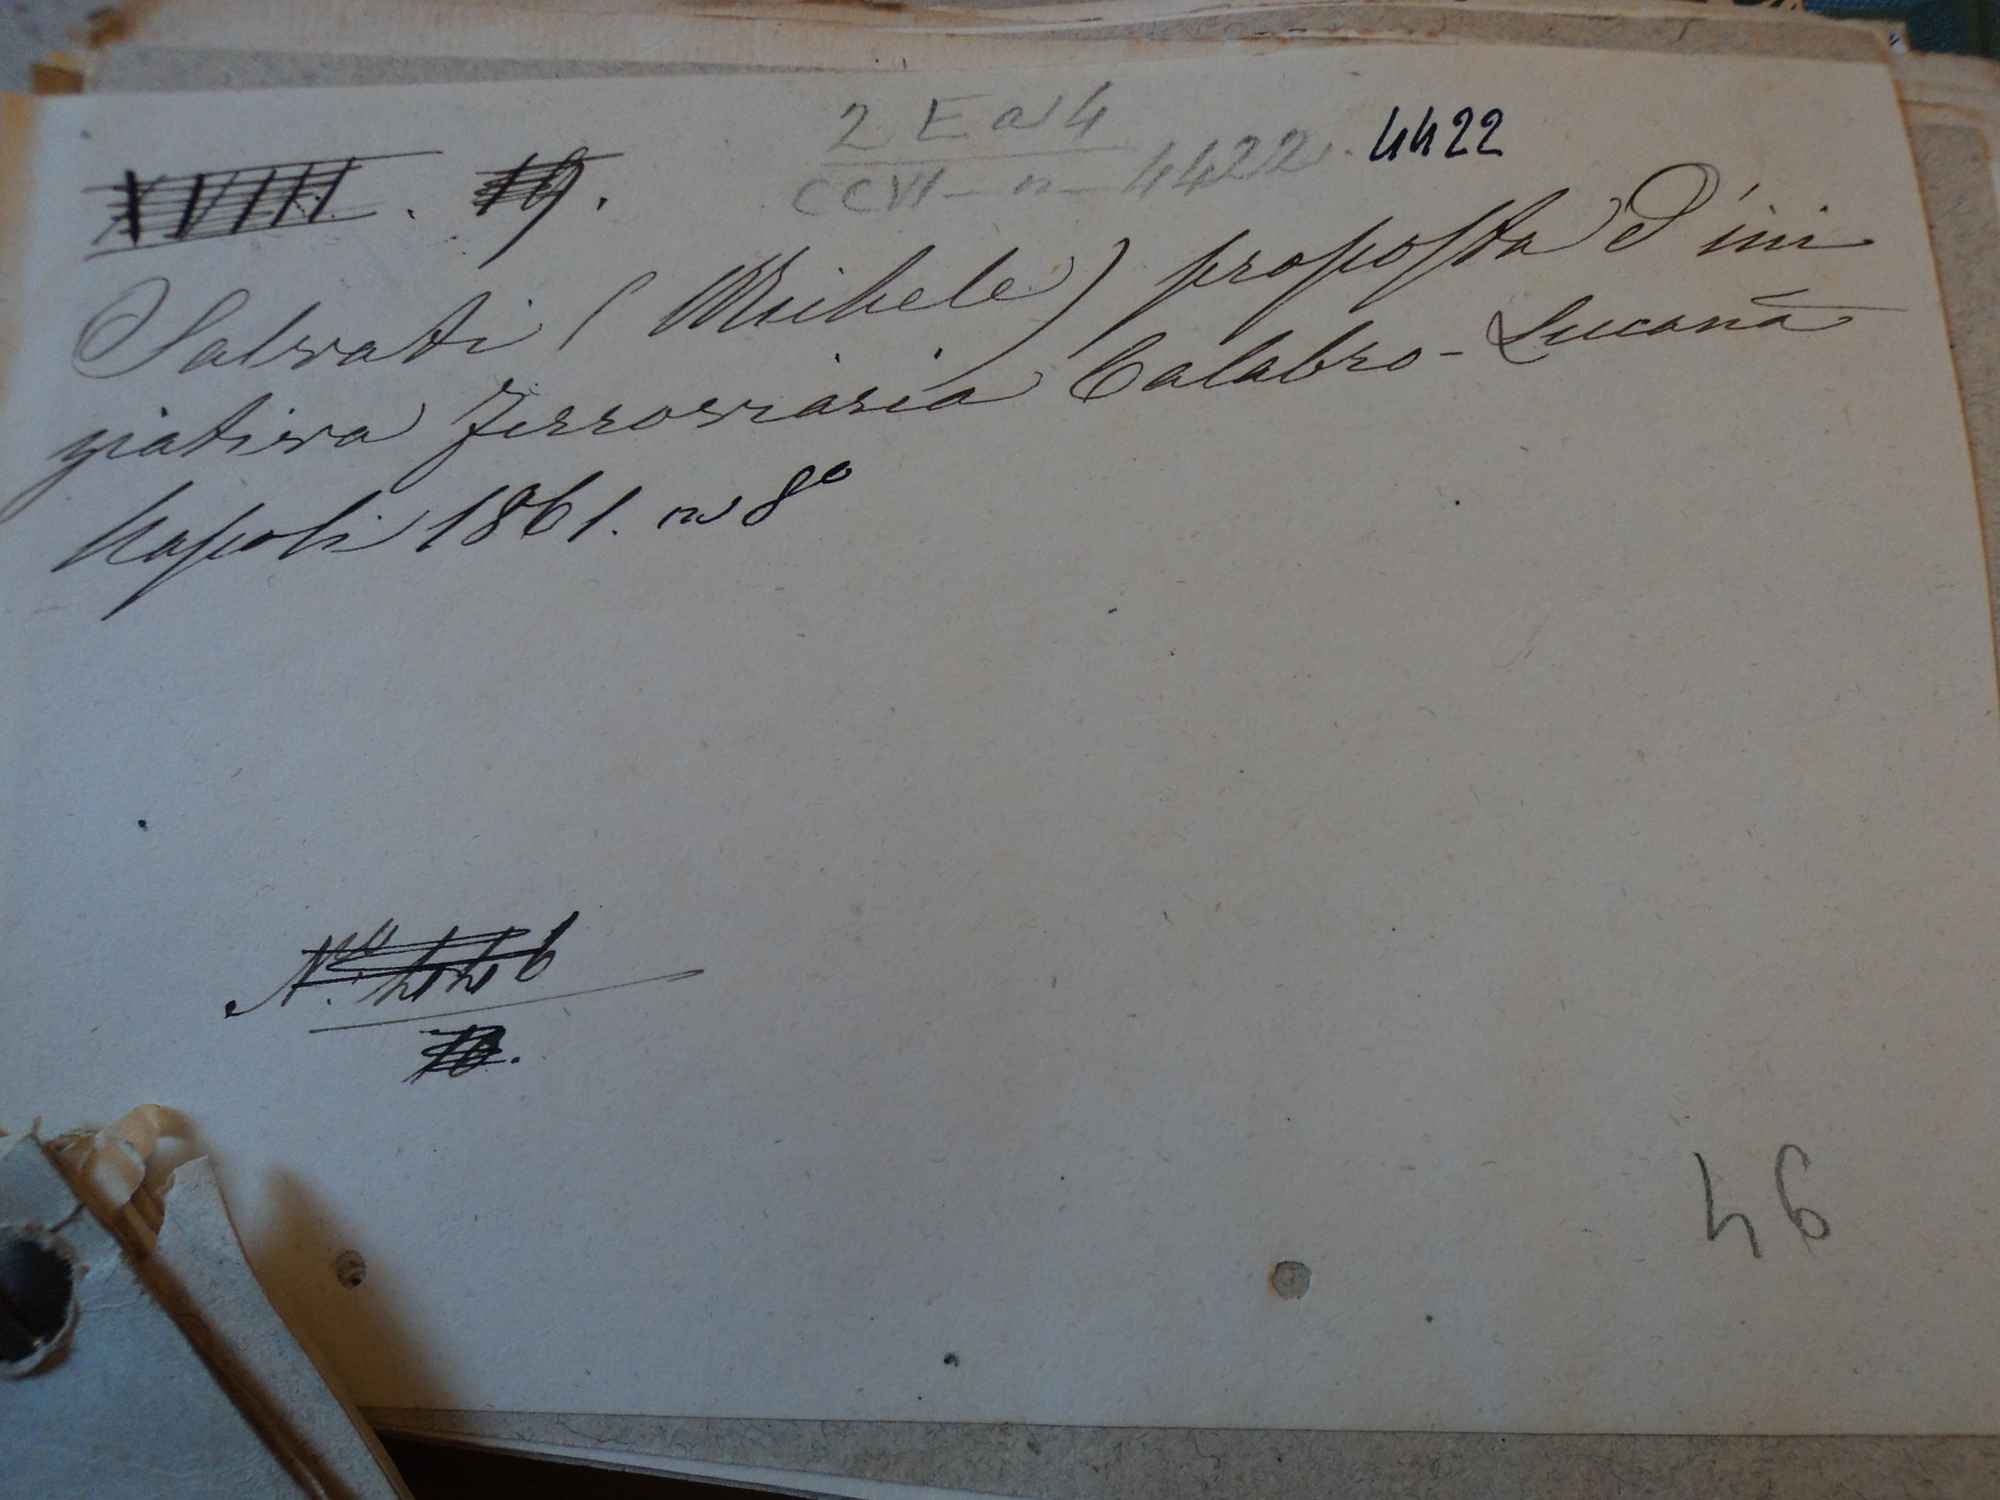 2 E a 4
XVIII. 19.
CCVI - n - 4422. 4422
Salvati (Michele) proposta d'ini
ziativa Ferroviaria Calabro-Lucana
Napoli 1861. in 8º
46